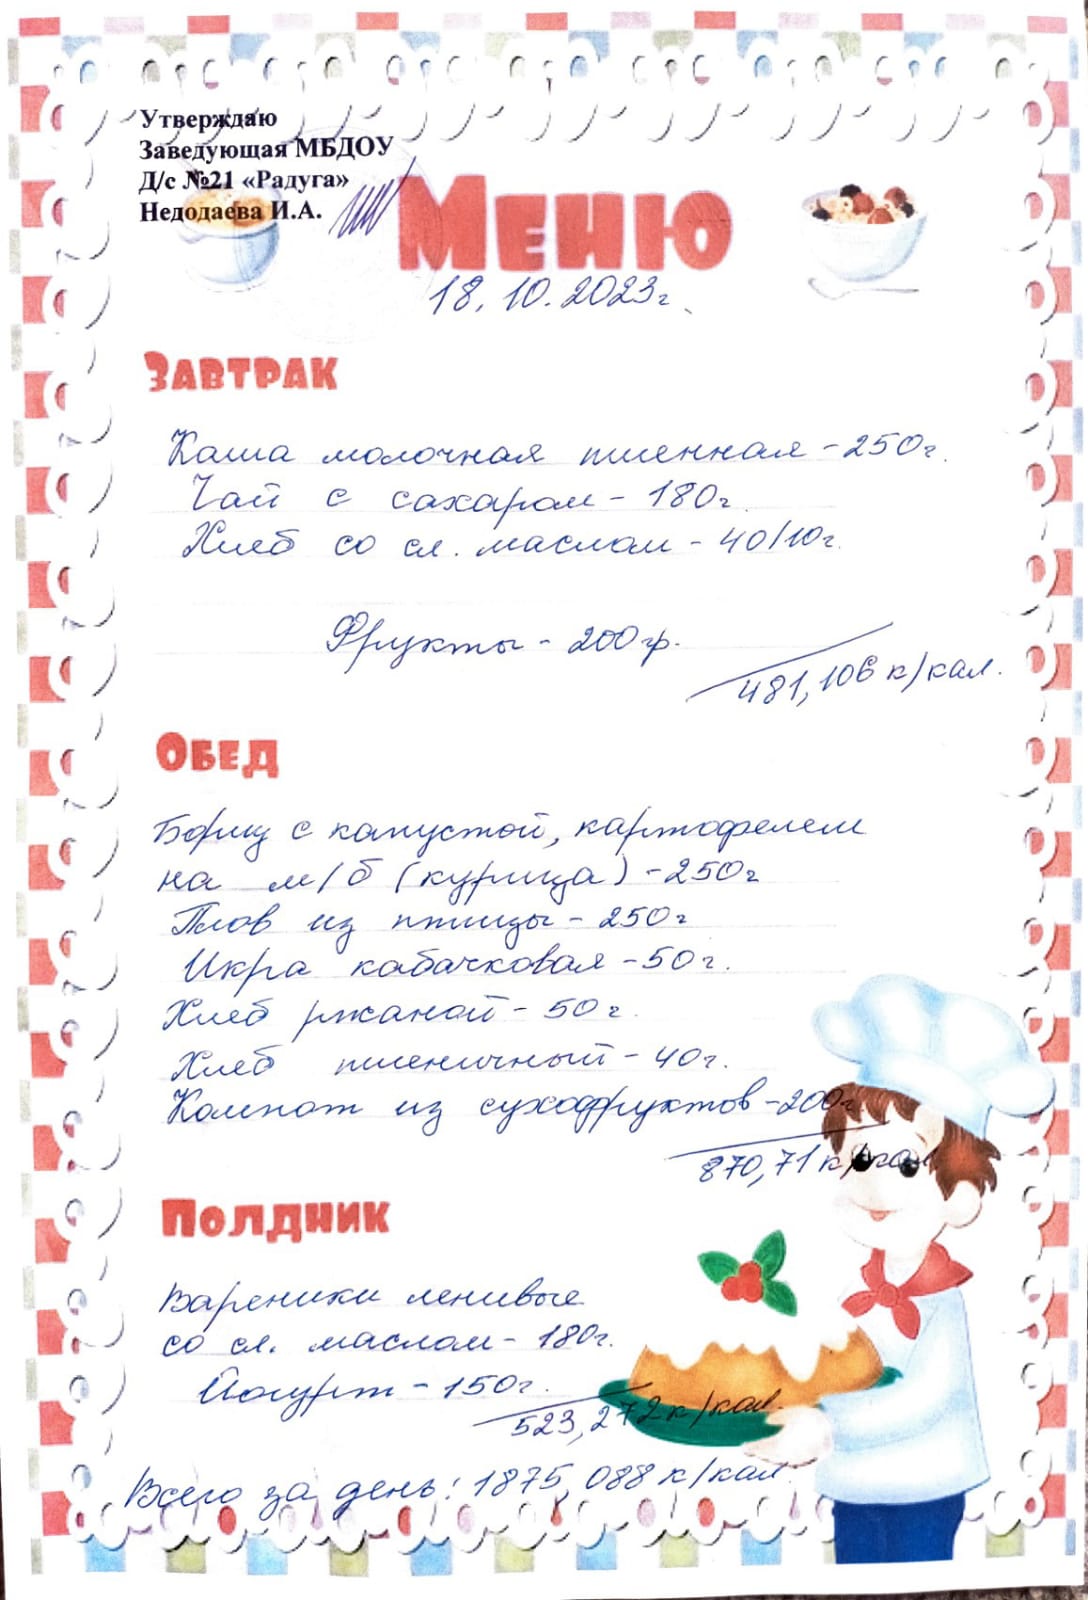 Утверждаю
Заведующая МБДОУ
Д/с №21 «Радуга»
Недодаева И.А.
Меню
18.10.2023г.
Завтрак
Каша молочная пшенная - 250г.
Чай с сахаром - 180г.
Хлеб со сл. маслом - 40/10г.
Фрукты - 200гр.
481,106 к/кал.
Обед
Борщ с капустой, картофелем
на м/б (курица) - 250г
Плов из птицы - 250г
Икра кабачковая - 50г.
Хлеб ржаной - 50г.
Хлеб пшеничный - 40г.
Компот из сухофруктов - 200г.
870,71 к/кал.
Полдник
Вареники ленивые
со сл. маслом - 180г.
Йогурт - 150г.
523,272 к/кал.
Всего за день: 1875,088 к/кал.